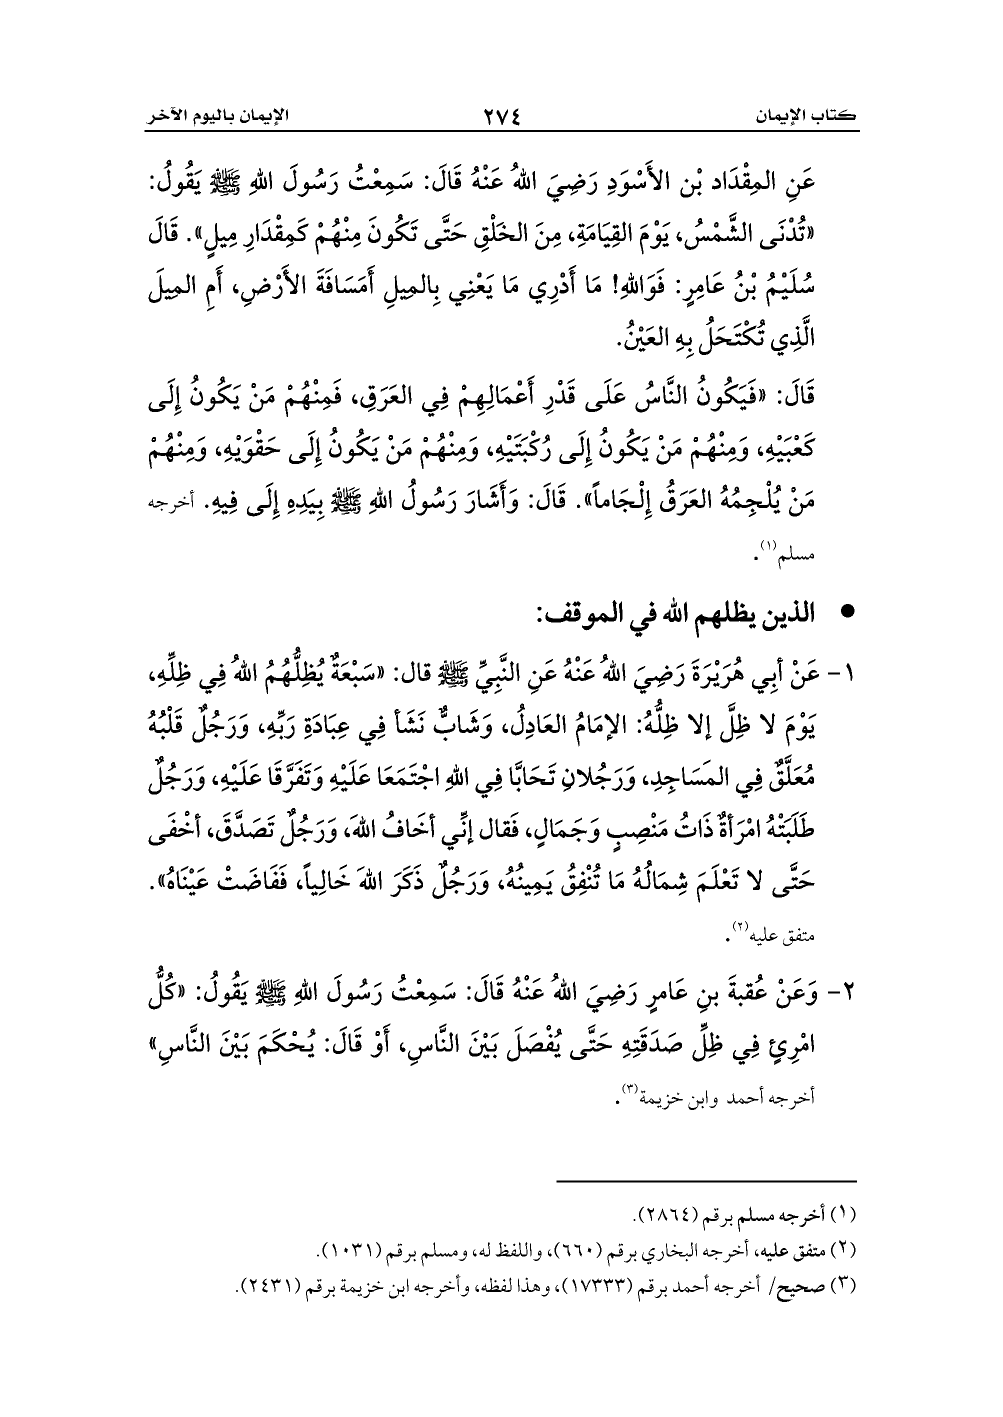 كتاب الإيمان ٢٧٤ الإيمان باليوم الآخر
عَنِ المِقْدَاد بْن الأَسْوَدِ رَضِيَ اللهُ عَنْهُ قَالَ: سَمِعْتُ رَسُولَ اللهِ ﷺ يَقُولُ:
«تُدْنَى الشَّمْسُ، يَوْمَ القِيَامَةِ، مِنَ الخَلْقِ حَتَّى تَكُونَ مِنْهُمْ كَمِقْدَارِ مِيلٍ». قَالَ
سُلَيْمُ بْنُ عَامِرٍ: فَوَاللهِ! مَا أَدْرِي مَا يَعْنِي بِالمِيلِ أَمَسَافَةَ الأَرْضِ، أَمِ المِيلَ
الَّذِي تُكْتَحَلُ بِهِ العَيْنُ.
قَالَ: «فَيَكُونُ النَّاسُ عَلَى قَدْرِ أَعْمَالِهِمْ فِي العَرَقِ، فَمِنْهُمْ مَنْ يَكُونُ إِلَى
كَعْبَيْهِ، وَمِنْهُمْ مَنْ يَكُونُ إِلَى رُكْبَتَيْهِ، وَمِنْهُمْ مَنْ يَكُونُ إِلَى حَقْوَيْهِ، وَمِنْهُمْ
مَنْ يُلْجِمُهُ العَرَقُ إِلْجَاماً». قَالَ: وَأَشَارَ رَسُولُ اللهِ ﷺ بِيَدِهِ إِلَى فِيهِ. أخرجه
مسلم(١).
● الذين يظلهم الله في الموقف:
١- عَنْ أبِي هُرَيْرَةَ رَضِيَ اللهُ عَنْهُ عَنِ النَّبِيِّ ﷺ قال: «سَبْعَةٌ يُظِلُّهُمُ اللهُ فِي ظِلِّهِ،
يَوْمَ لا ظِلَّ إلا ظِلُّهُ: الإمَامُ العَادِلُ، وَشَابٌّ نَشَأ فِي عِبَادَةِ رَبِّهِ، وَرَجُلٌ قَلْبُهُ
مُعَلَّقٌ فِي المَسَاجِدِ، وَرَجُلانِ تَحَابَّا فِي اللهِ اجْتَمَعَا عَلَيْهِ وَتَفَرَّقَا عَلَيْهِ، وَرَجُلٌ
طَلَبَتْهُ امْرَأةٌ ذَاتُ مَنْصِبٍ وَجَمَالٍ، فَقال إنِّي أخَافُ اللهَ، وَرَجُلٌ تَصَدَّقَ، أخْفَى
حَتَّى لا تَعْلَمَ شِمَالُهُ مَا تُنْفِقُ يَمِينُهُ، وَرَجُلٌ ذَكَرَ اللهَ خَالِياً، فَفَاضَتْ عَيْنَاهُ».
متفق عليه(٢).
٢- وَعَنْ عُقبةَ بنِ عَامرٍ رَضِيَ اللهُ عَنْهُ قَالَ: سَمِعْتُ رَسُولَ اللهِ ﷺ يَقُولُ: «كُلُّ
امْرِئٍ فِي ظِلِّ صَدَقَتِهِ حَتَّى يُفْصَلَ بَيْنَ النَّاسِ، أَوْ قَالَ: يُحْكَمَ بَيْنَ النَّاسِ»
أخرجه أحمد وابن خزيمة(٣).
(١) أخرجه مسلم برقم (٢٨٦٤).
(٢) متفق عليه، أخرجه البخاري برقم (٦٦٠)، واللفظ له، ومسلم برقم (١٠٣١).
(٣) صحيح/ أخرجه أحمد برقم (١٧٣٣٣)، وهذا لفظه، وأخرجه ابن خزيمة برقم (٢٤٣١).